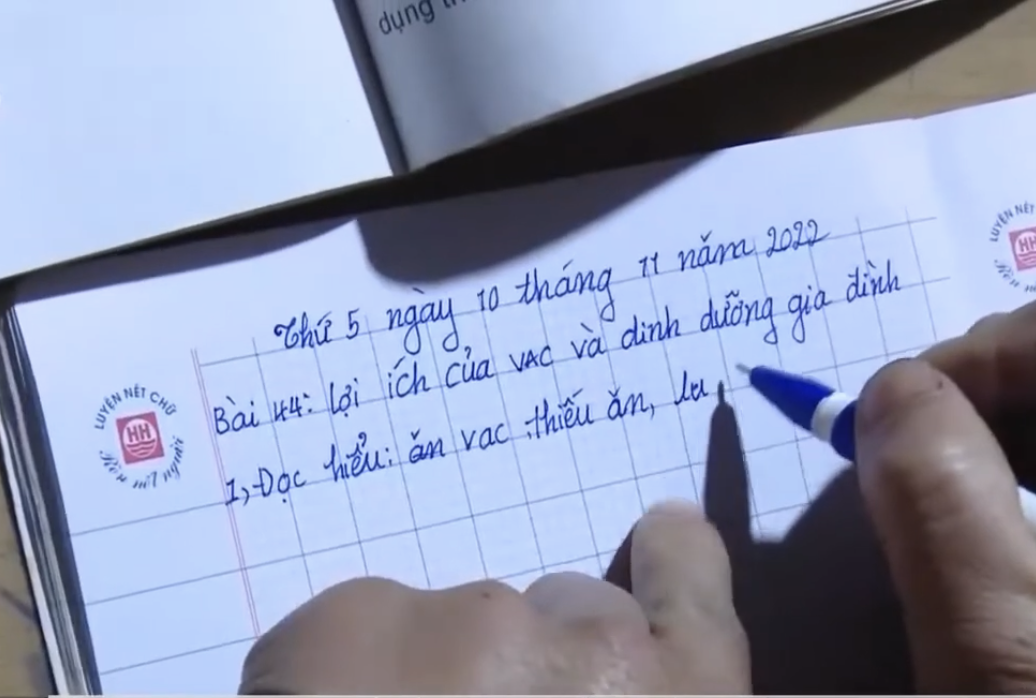 dụng
Thứ 5 ngày 10 tháng 11 năm 2022
Bài 44: lợi ích của VAC và dinh dưỡng gia đình
1, Đọc hiểu: ăn vac thiếu ăn, lu
LUYỆN NÉT CHỮ
HH
Rèn nết người
LUYỆN NÉT
HH